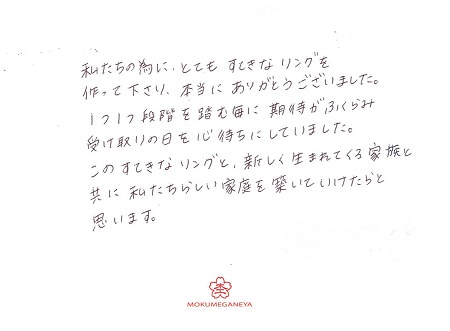 私たちの為に、とても すてきな リングを
作って下さり、本当に ありがとうございました。
1つ1つ段階を踏む毎に 期待がふくらみ
受け取りの日を心待ちにしていました。
このすてきなリングと、新しく生まれてくる家族と
共に 私たちらしい家庭を築いていけたらと
思います。
MOKUMEGANEYA